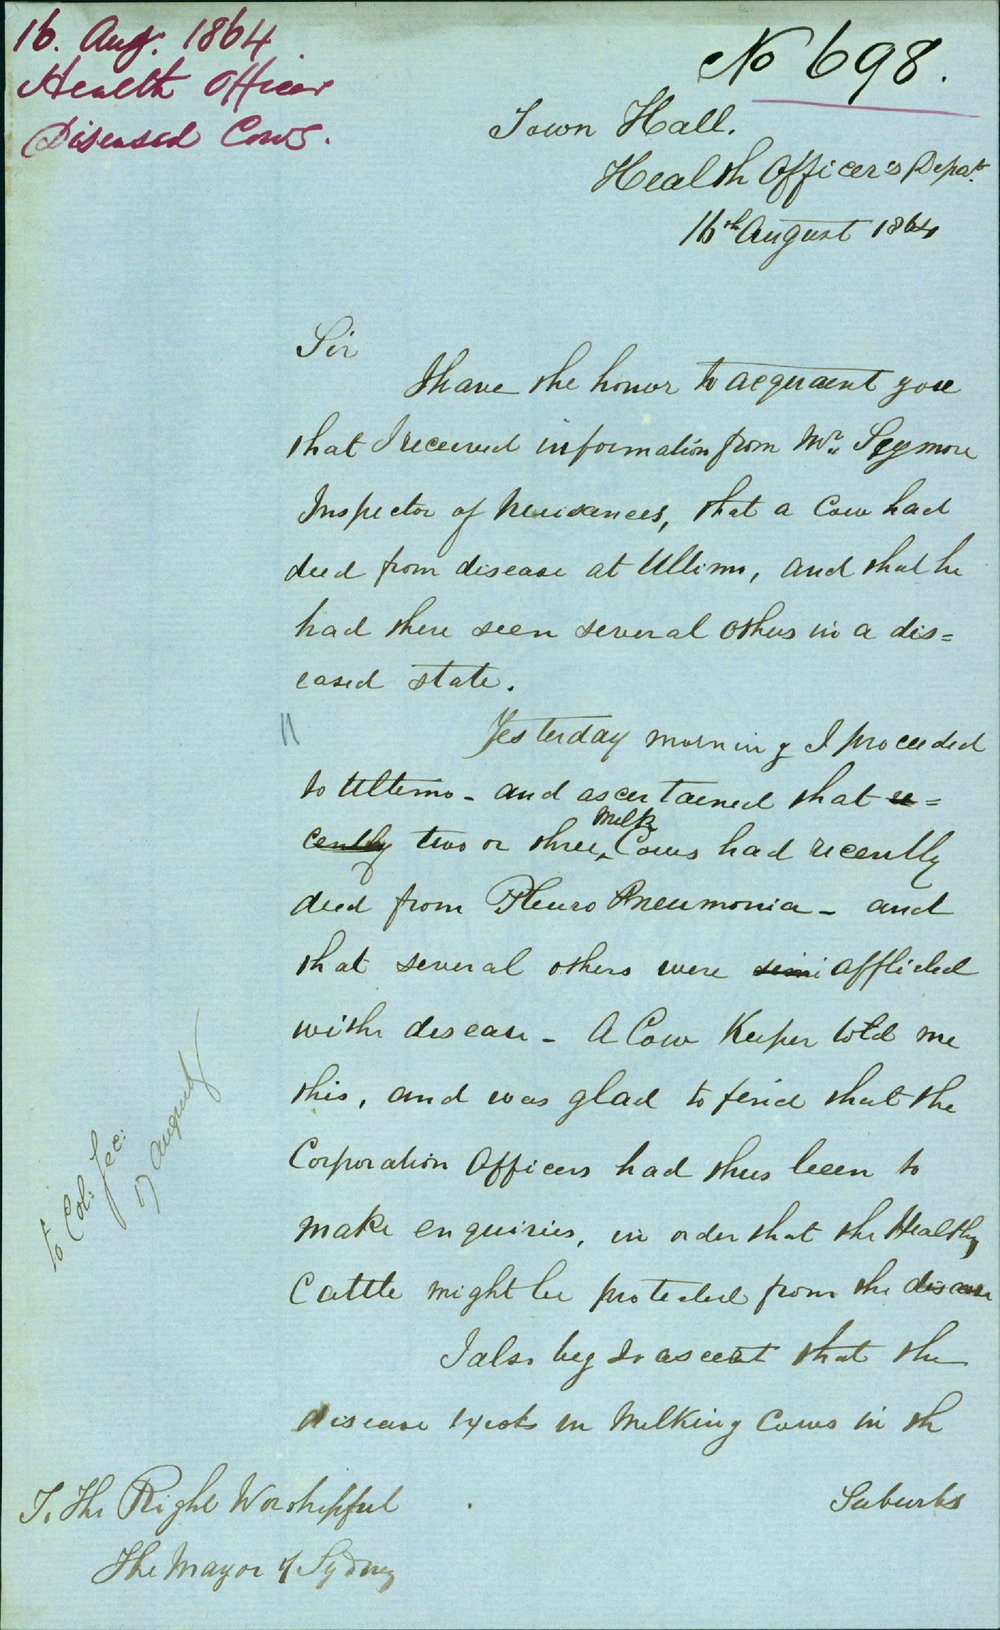 16. Aug: 1864
Health Officer
Diseased Cows.
No 698.
Town Hall.
Health Officer's Depat.
16th August 1864
Sir
I have the honor to acquaint you
that I received information from Mr. Seymore
Inspector of Nuisances, that a Cow had
died from disease at Ultimo, and that he
had there seen several others in a dis=
eased state.
Yesterday morning I proceeded
to Ultimo - and ascertained that re=
cently two or three Milk Cows had recently
died from Pleuro Pneumonia - and
that several others were afflicted
with disease - A Cow Keeper told me
this, and was glad to find that the
Corporation Officers had thus been to
make enquiries, in order that the Healthy
Cattle might be protected from the disease
I also beg to that the
disease exists in Milking Cows in the
Suburbs
To The Right Worshipful
The Mayor of Sydney
to Col: Sec:
17 August